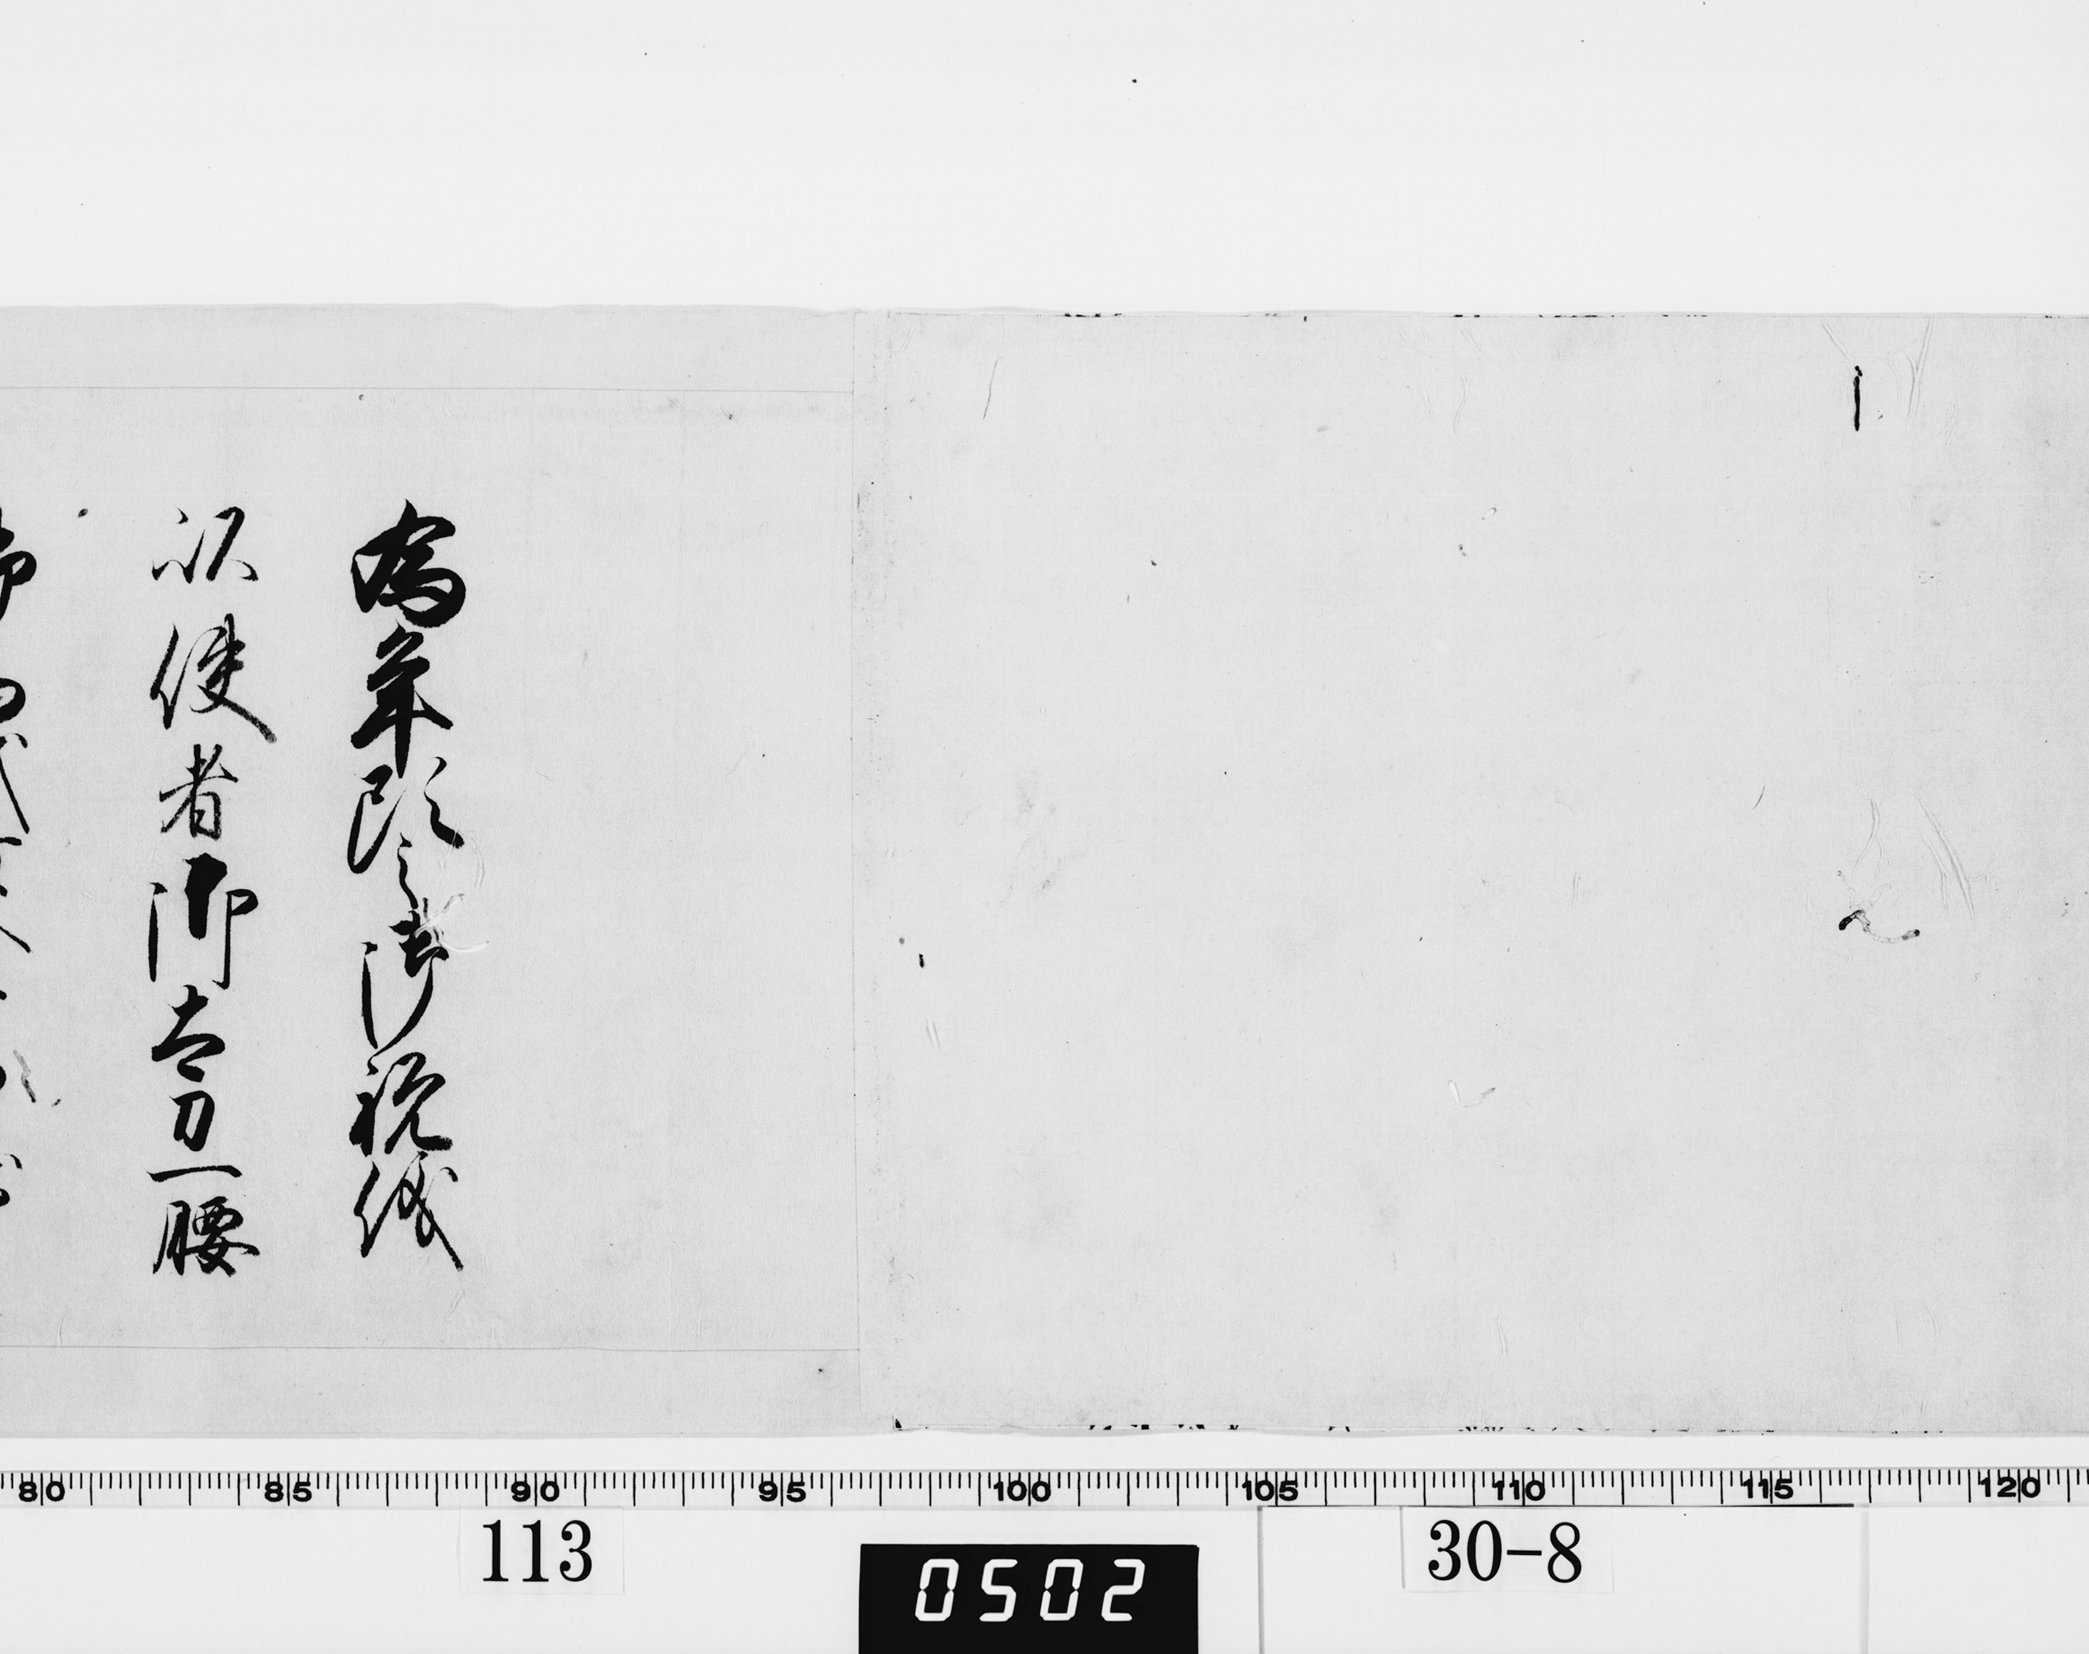 為年頭之御祝儀
以使者御太刀一腰
御馬代
80 85 90 95 100 105 110 115 120
113
0502
30-8